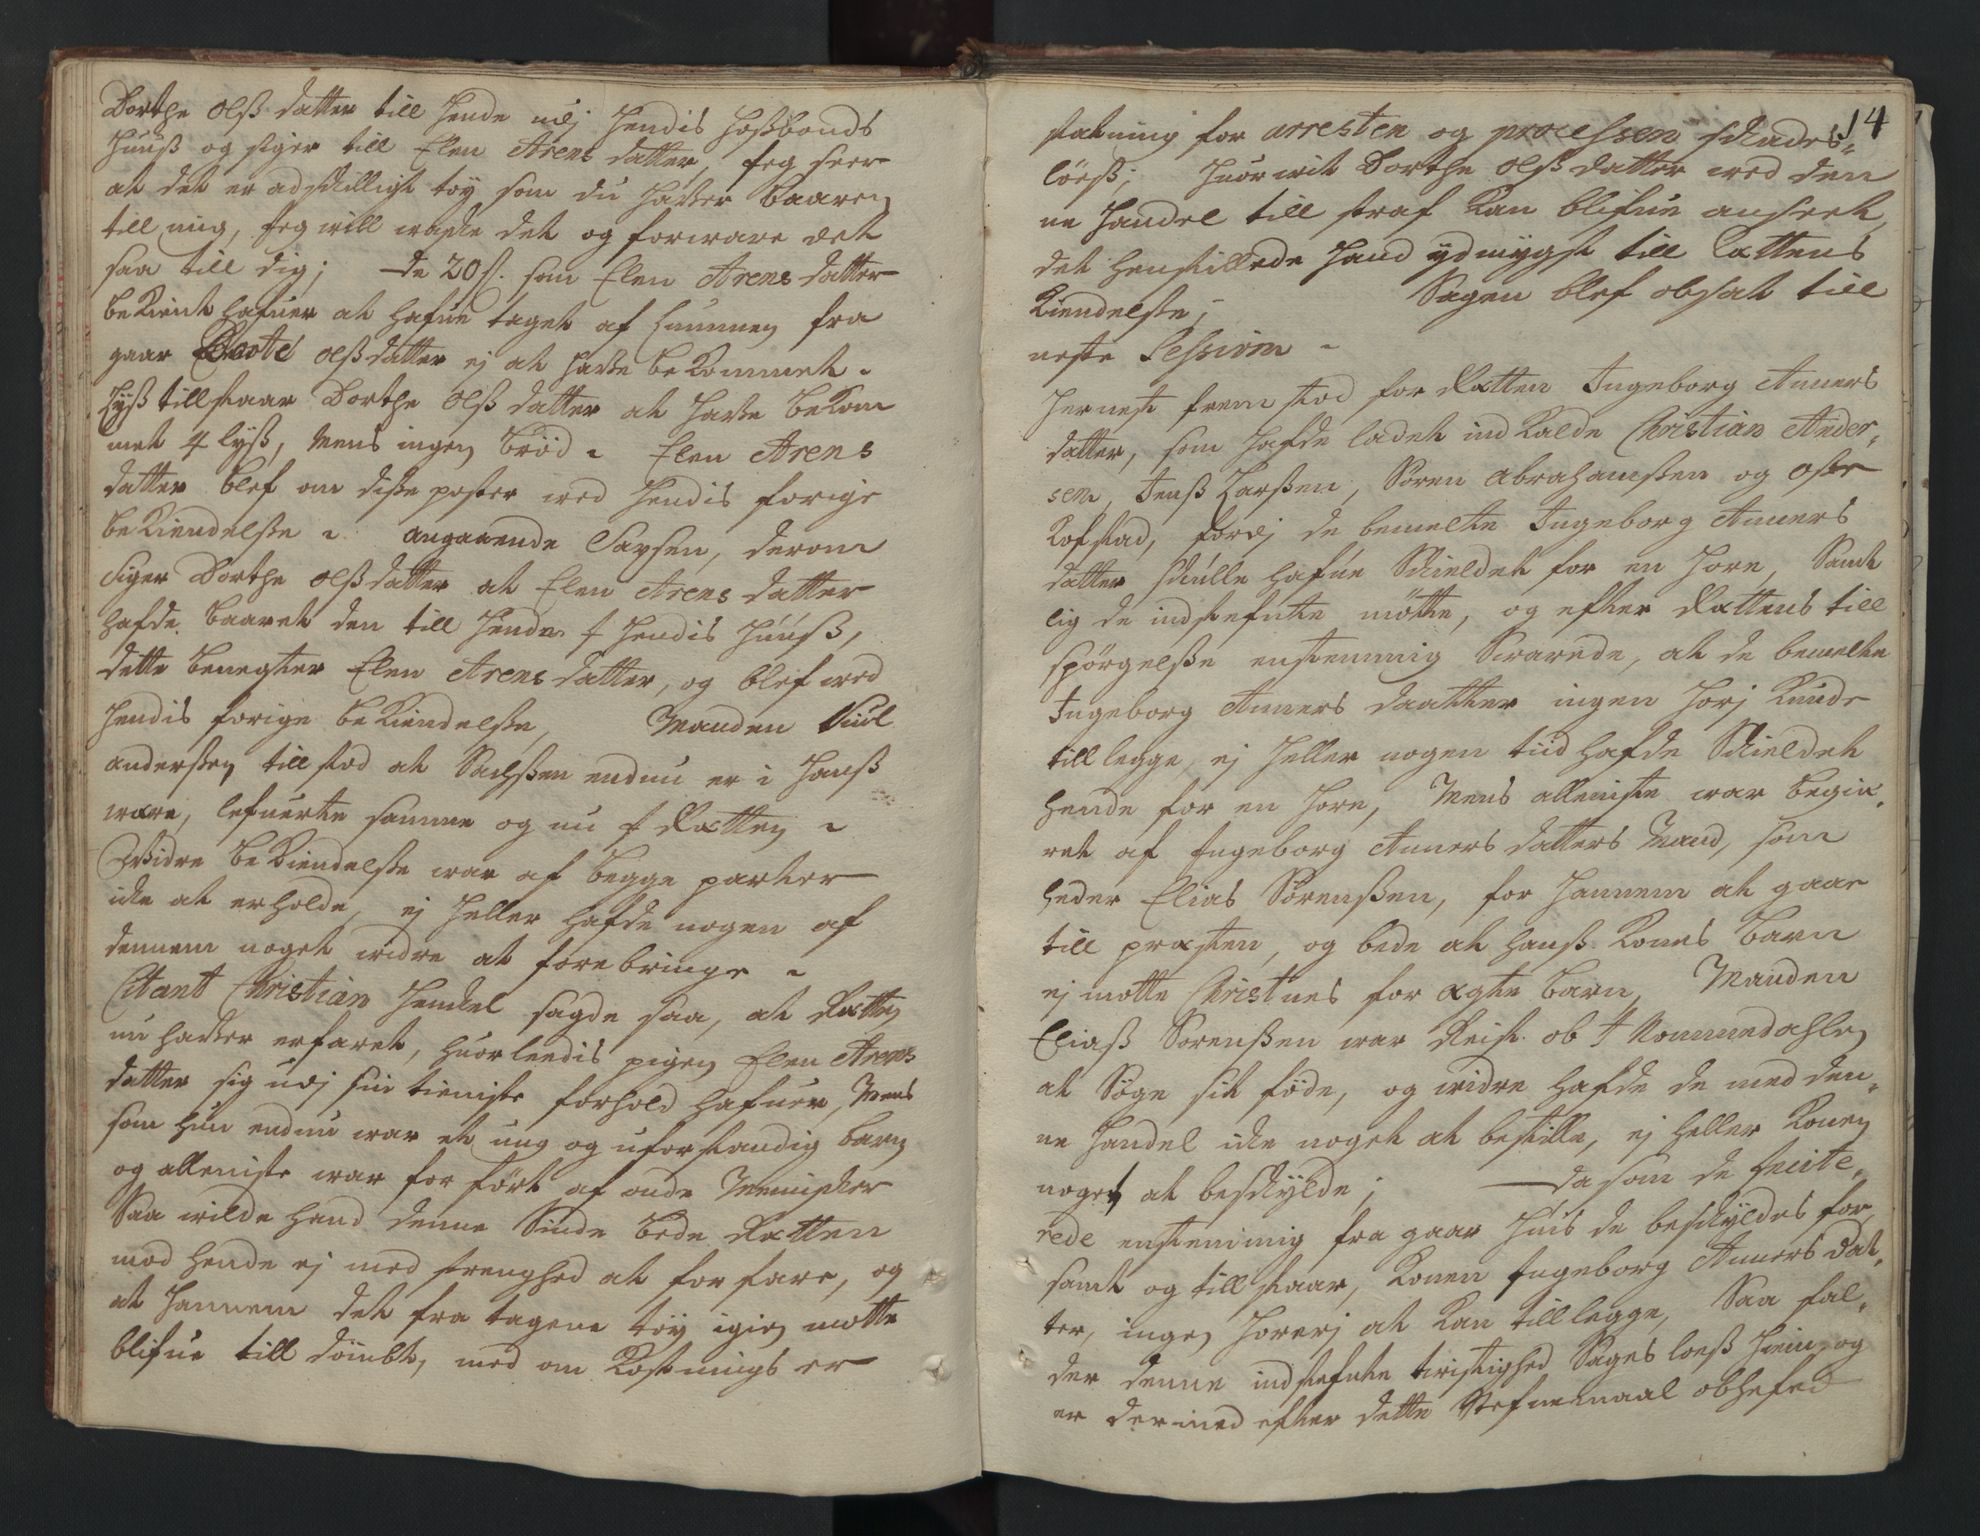 Dorthe Olß datter till hende udj hendis hoßbonds
huuß og siger till Elen Arens datter, Jeg seer
at det er adskilligt töy som du hafver baaren
till mig, Jeg will waske det og forware det
saa till dig; de 20 s. som Elen Arens datter
bekient hafuer at hafue taget af
gaar Dorte Olßdatter ej at hafve bekommet.
Lyß tillstaar Dorthe Olß datter at hafve bekom
met 4 lyß, mens ingen bröd. Elen Arens
datter blef om diße poster wed hendis forige
bekiendelße. angaaende Saxsen, derom
siger Dorthe Olßdatter at Elen Arens datter
hafde baaret den till hende J hendis huuß,
dette benegter Elen Arens datter, og blef wed
hendis forige bekiendelße, Manden Kiul
anderßen till stod at Sachßen endnu er i hanß
ware, lefuerte samme og nu J Rætten
Widre bekiendelße war af begge parter
icke at erholde, ej heller hafde nogen af
dennem noget widre at forebringe
Citant Christian Henckel sagde saa, at Rætten
nu hafver erfaret, huorleedis pigen Elen Arens
datter sig udj sin tieniste forhold hafuer, Mens
som hun endnu war et ung og uforstandig barn
og alleniste war forført af onde Mennisker
Saa wilde hand denne Sinde bede Rætten
mod hende ej med strenghed at forfare, og
at hannem det fra tagene töy igien motte
blifue till dömbt, med om Kostnings er
14
statning for arresten og processen skades-
löeß; huorwit Dorthe Olß datter wed den
ne handel till straf kan blifue anseet,
det henstillede hand ydmygst till Rættens
Kiendelße; Sagen blef obsat till
neste Session
hernest frem stod for Rætten Ingeborg Anners
datter, som hafde ladet ind kalde Christian Ander-
sen, Jenß Larßen, Sören Abrahamßen og Oße
Kofstad, fordj de bemelte Ingeborg Anners
datter skulle hafue skieldet for en hore, Samt
lig de indstefnte mötte, og efter Rættens till
spörgelße enstemmig Swarede, at de bemelte
Ingeborg Anners daatter ingen horj kunde
till legge, ej heller nogen tiid hafde skieldet
hende for en hore, Mens alleniste war begie-
ret af Ingeborg Anners datters Mand, som
heder Elias Sörenßen, for hannem at gaae
till præsten, og bede at hanß kones barn
ej motte Christnes for ægte barn, Manden
Eliaß Sörenßen war Reist ob J Nommedahlen
at Söge sit föde, og widre hafde de med den-
ne handel icke noget at bestille, ej heller konen
noget at beskylde; da som de Jncite-
rede enstemmig fra gaar huis de beskyldes for,
samt og till staar, konen Ingeborg Anners dat-
ter, ingen horerj at kan till legge, Saa fal-
der denne indstefnte twistighed Sagesløeß hien, og
er dermed efter dette Stefnemaal obhefed